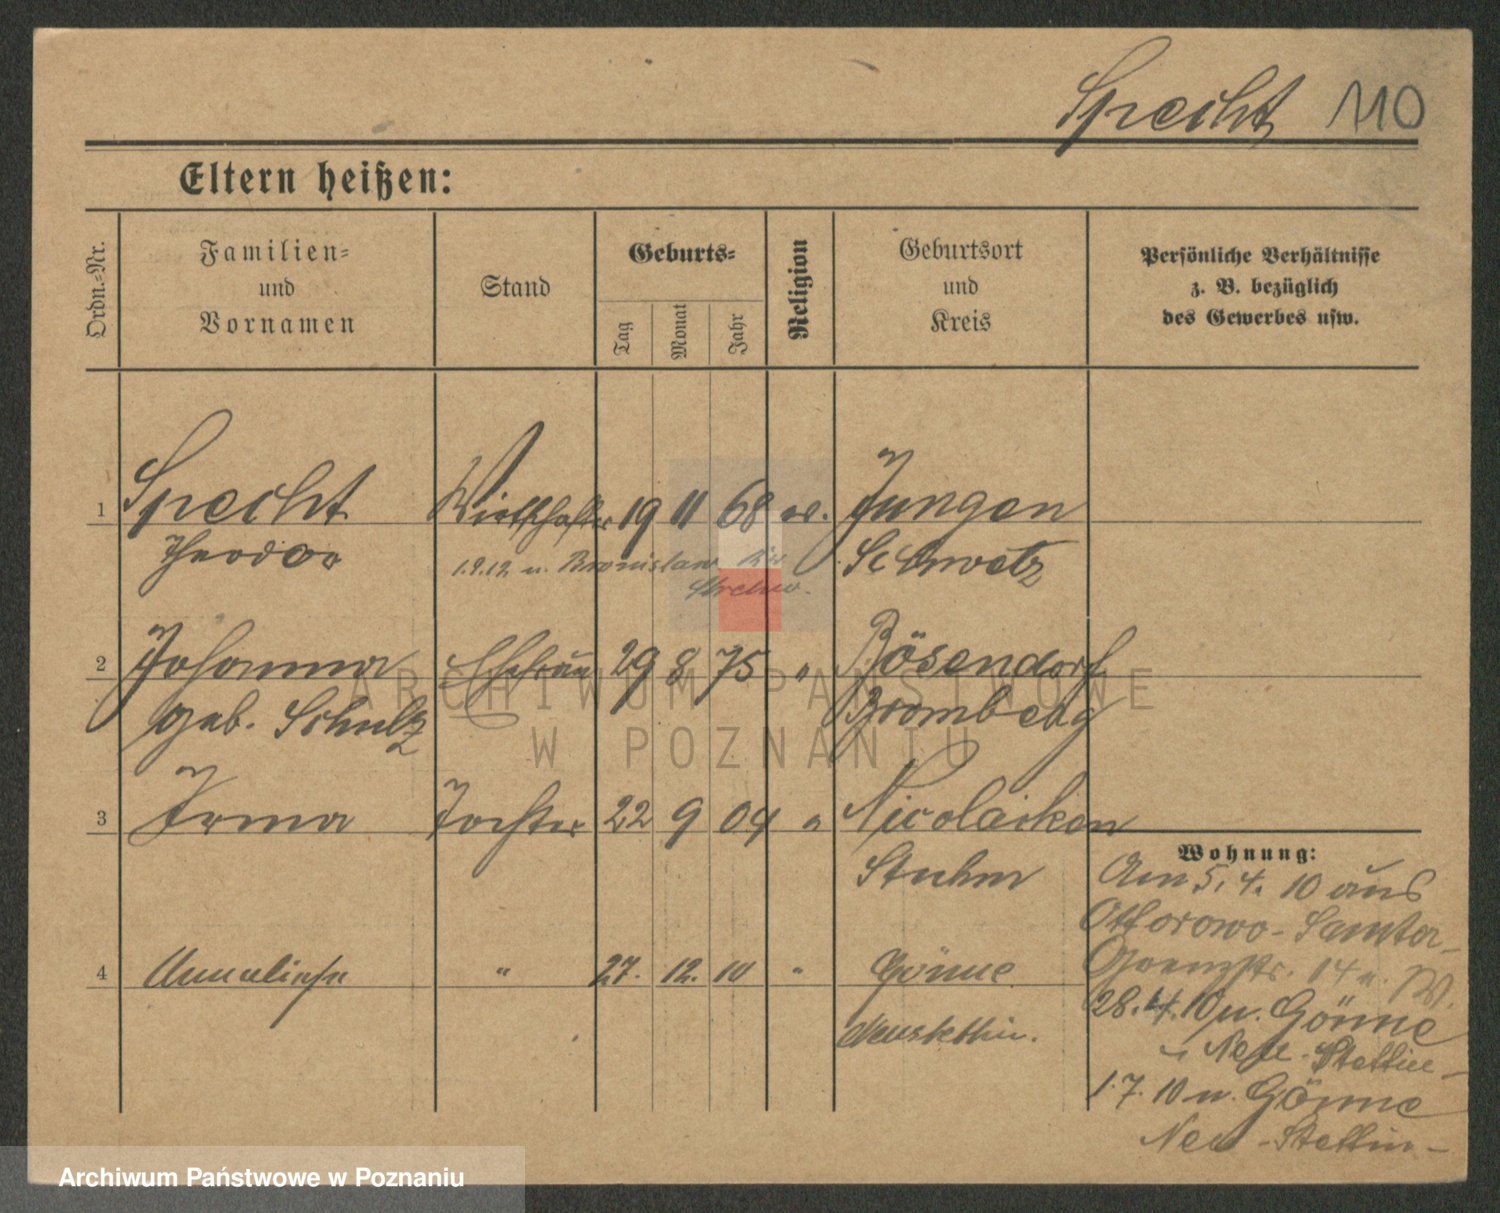 Specht 110
Eltern heißen:
Ordn.-Nr.
Familien-
und
Vornamen
Stand
Geburts-
Tag
Monat
Jahr
Religion
Geburtsort
und
Kreis
Persönliche Verhältnisse
z. B. bezüglich
des Gewerbes usw.
1 Specht 19 11 68 Jungen
Theodor
1.9.12 n. Bronislaw
Schwetz
2 Johanna Ehefrau 29 8 75 " Bösendorf
geb. Schulz Bromberg
3 Irma Tochter 22 9 04 " Nicolaiken
Stuhm
Wohnung:
Am 5. 4. 10 aus
Otforowo - Samter -
4 Annaliese " 27. 12. 10 " Gönne
Neustettin.
14 n. W.
28. 4. 10 n. Gönne
Neu-Stettin -
1. 7. 10 n. Gönne
Neu-Stettin -
ARCHIWUM PAŃSTWOWE
W POZNANIU
Archiwum Państwowe w Poznaniu